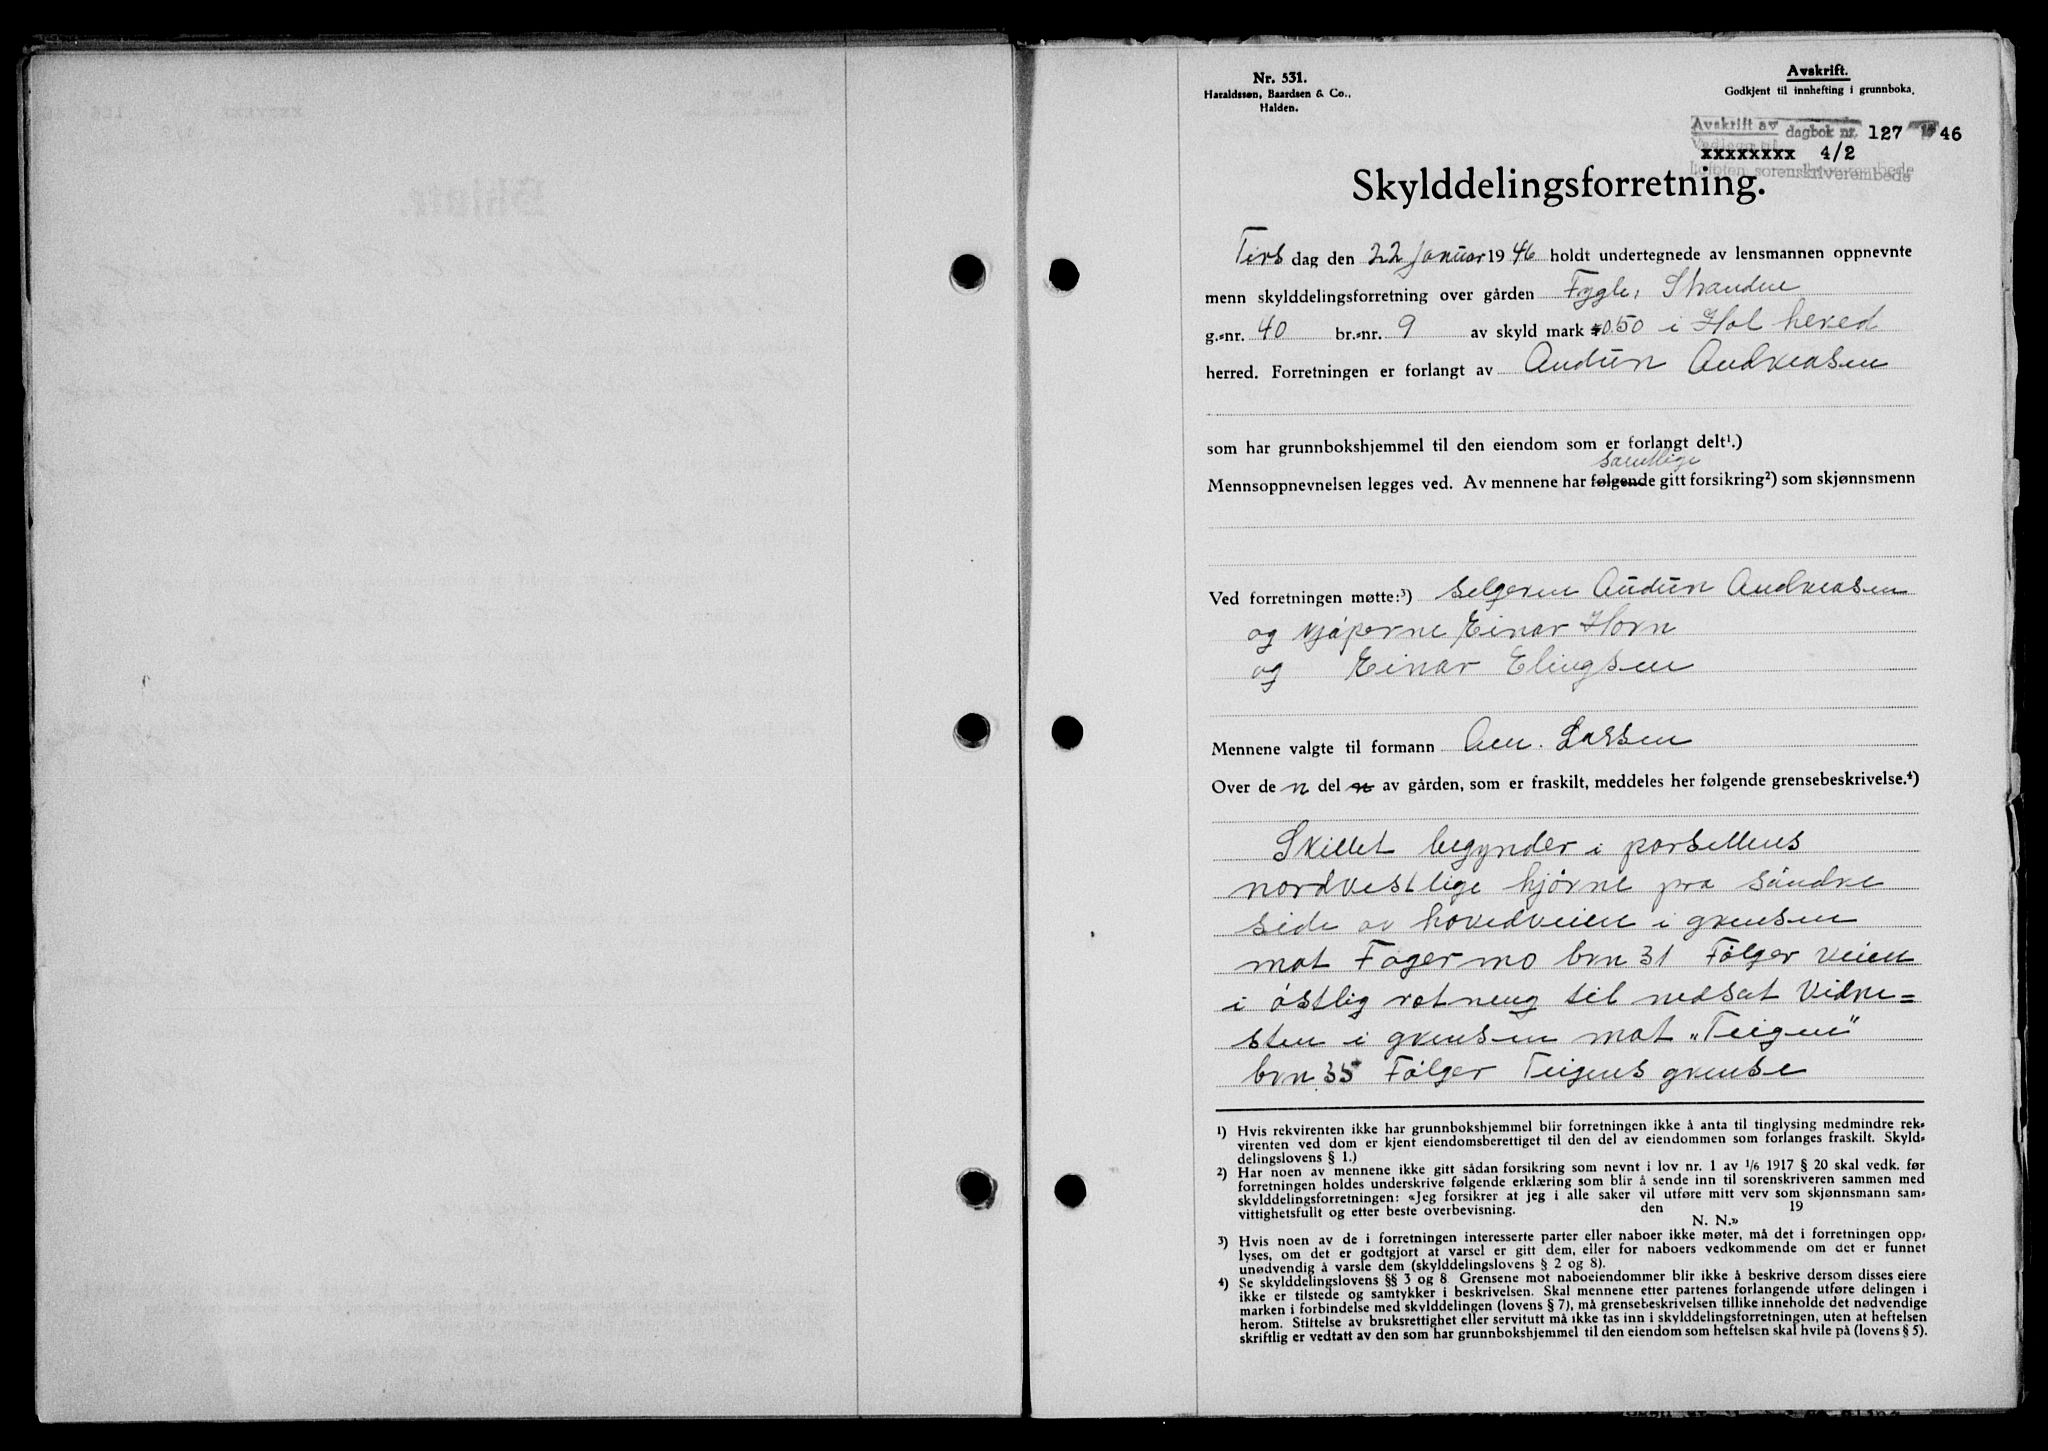 Nr. 531.
Haraldssøn, Baardsen & Co.,
Halden.
Avskrift.
Godkjent til innhefting i grunnboka.
Avskrift av dagbok nr. 127 1946
xxxxxxxx 4/2
Lofoten sorenskriverembede
Skylddelingsforretning.
Tirs dag den 22 januar 1946 holdt undertegnede av lensmannen oppnevnte
menn skylddelingsforretning over gården Fygle, Stranden
g.-nr. 40 br.-nr. 9 av skyld mark 0.50 i Hol herred
herred. Forretningen er forlangt av Audun Andreasen
som har grunnbokshjemmel til den eiendom som er forlangt delt¹.)
samtlige
Mennsoppnevnelsen legges ved. Av mennene har følgende gitt forsikring²) som skjønnsmenn
Ved forretningen møtte:³) Selgeren Audun Andreasen
og kjøperne Einar Horn
og Einar Elingsen
Mennene valgte til formann Am. Larsen
Over de n del av gården, som er fraskilt, meddeles her følgende grensebeskrivelse.⁴)
Skillet begynder i parsellens
nordvestlige hjørne pra søndre
side av hovedveien i grensen
mot Fagermo brn 31 Følger veien
i østlig retning til nedsat Vidne=
sten i grensen mot „Teigen"
brn 35 Følger Teigens grense
¹) Hvis rekvirenten ikke har grunnbokshjemmel blir forretningen ikke å anta til tinglysing medmindre rek-
virenten ved dom er kjent eiendomsberettiget til den del av eiendommen som forlanges fraskilt. Skyld-
delingslovens § 1.)
²) Har noen av mennene ikke gitt sådan forsikring som nevnt i lov nr. 1 av 1/6 1917 § 20 skal vedk. før
forretningen holdes underskrive følgende erklæring som blir å sende inn til sorenskriveren sammen med
skylddelingsforretningen: «Jeg forsikrer at jeg i alle saker vil utføre mitt verv som skjønnsmann sam-
vittighetsfullt og etter beste overbevisning. den 19
N. N.»
³) Hvis noen av de i forretningen interesserte parter eller naboer ikke møter, må det i forretningen opp-
lyses, om det er godtgjort at varsel er gitt dem, eller for naboers vedkommende om det er funnet
unødvendig å varsle dem (skylddelingslovens § 2 og 8).
⁴) Se skylddelingslovens §§ 3 og 8. Grensene mot naboeiendommer blir ikke å beskrive dersom disses eiere
ikke er tilstede og samtykker i beskrivelsen. Skal mennene etter partenes forlangende utføre delingen i
marken i forbindelse med skylddelingen (lovens § 7), må grensebeskrivelsen tillike inneholde det nødvendige
herom. Stiftelse av bruksrettighet eller servitutt må ikke tas inn i skylddelingsforretningen, uten at heftelsen
skriftlig er vedtatt av den som har grunnbokshjemmel til den eiendom som heftelsen skal hvile på (lovens § 5).